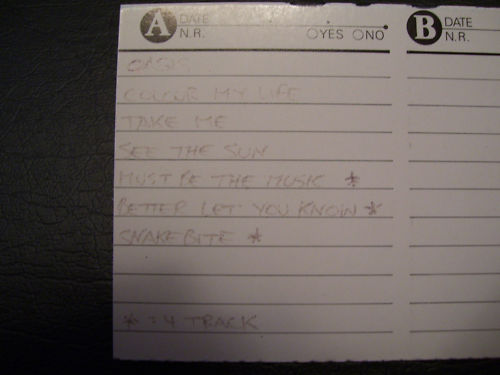 A DATE
N.R. YES NO
B DATE
N.R.
OASIS
COLOUR MY LIFE
TAKE ME
SEE THE SUN
MUST BE THE MUSIC *
BETTER LET YOU KNOW *
SNAKEBITE *
* = 4 TRACK